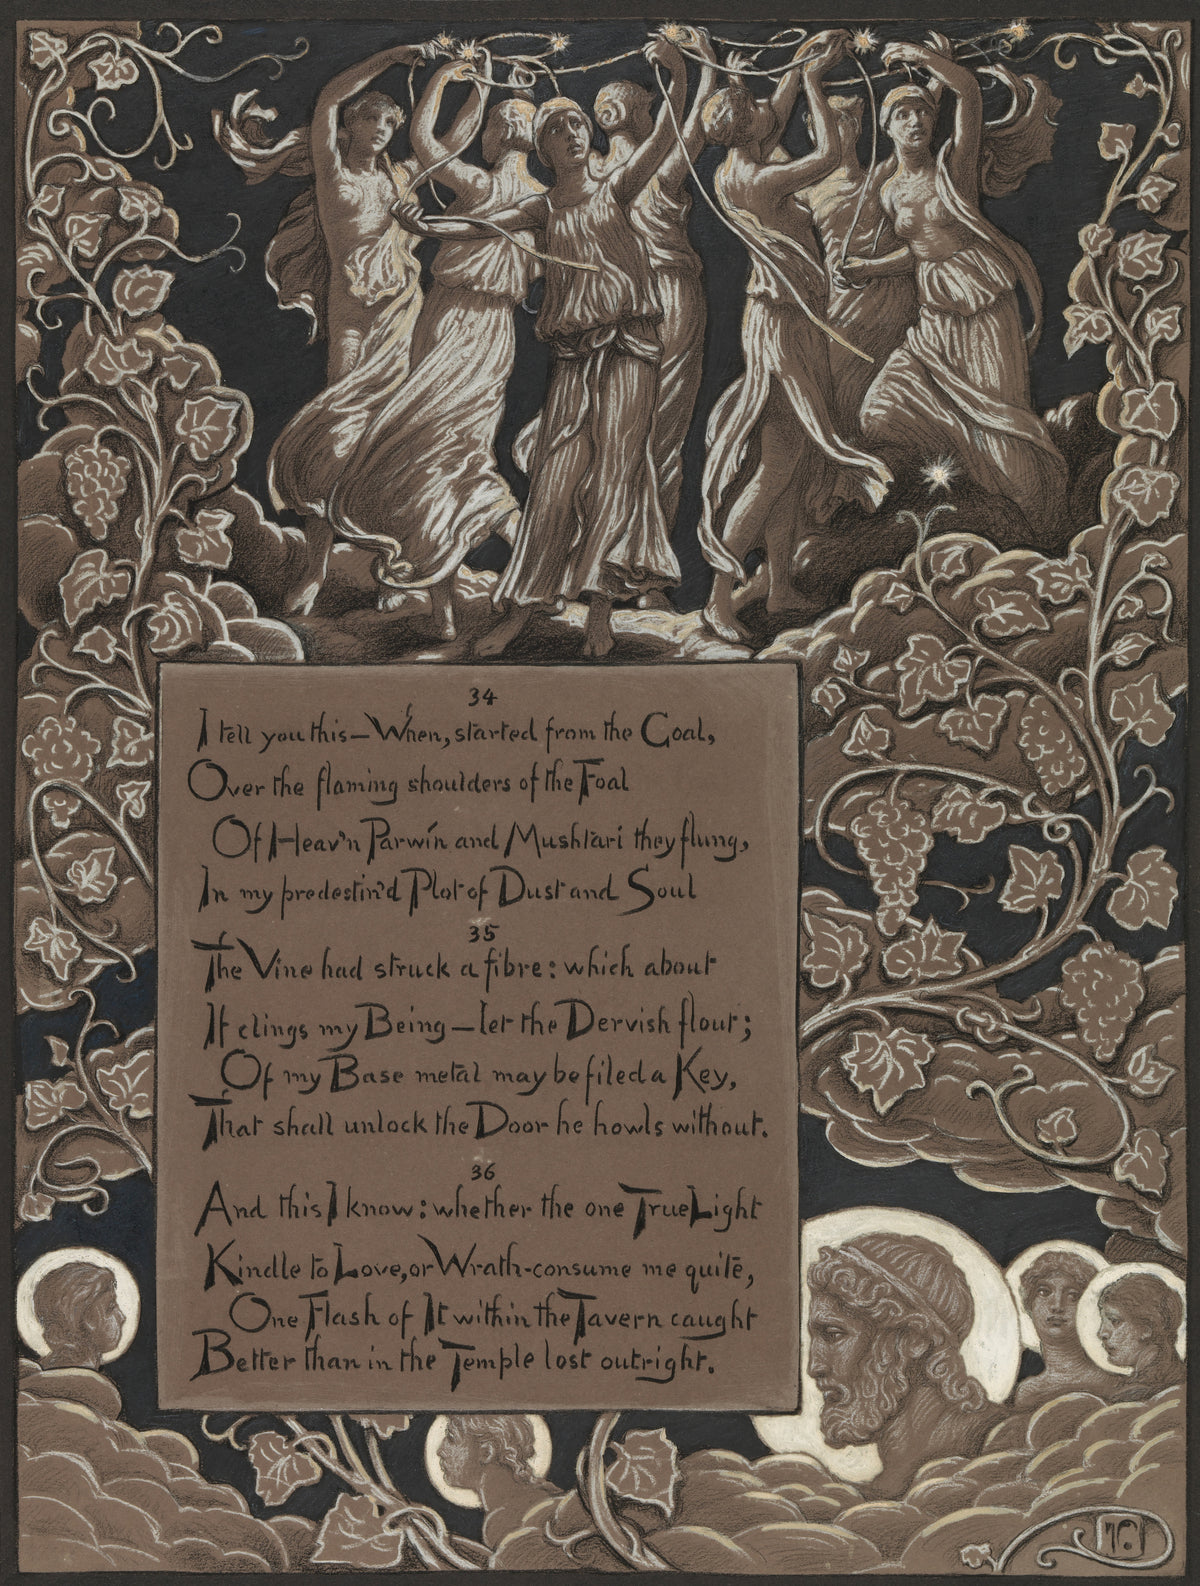 34
I tell you this—When, started from the Goal,
Over the flaming shoulders of the Foal
Of Heav'n Parwín and Mushtari they flung,
In my predestin'd Plot of Dust and Soul
35
The Vine had struck a fibre: which about
It clings my Being—let the Dervish flout;
Of my Base metal may be filed a Key,
That shall unlock the Door he howls without.
36
And this I know: whether the one True Light
Kindle to Love, or Wrath-consume me quite,
One Flash of It within the Tavern caught
Better than in the Temple lost outright.